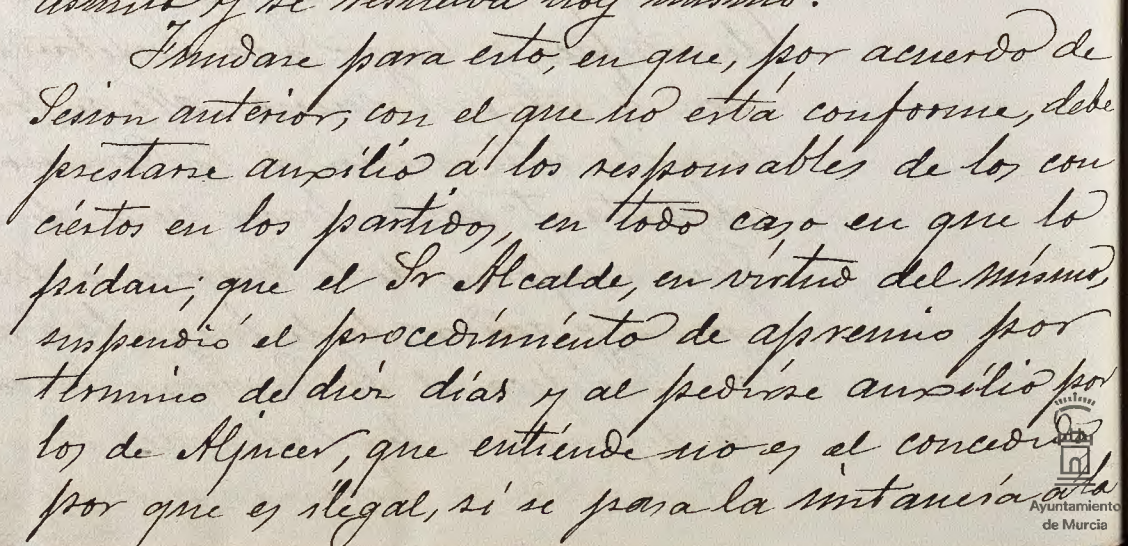 asunto y se resuelva hoy mismo.
Fundase para esto, en que, por acuerdo de
Sesion anterior, con el que no está conforme, debe
prestarse auxilio á los responsables de los con
ciertos en los partidos, en todo caso en que lo
pidan; que el Sr Alcalde, en virtud del mismo,
suspendió el procedimiento de apremio por
termino de diez días y al pedirse auxilio por
los de Aljucer, que entiende no es el concedido
por que es ilegal, si se pasa la instancia a la
Ayuntamiento
de Murcia